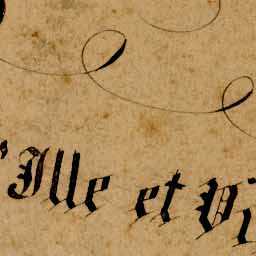 Ille et Vi